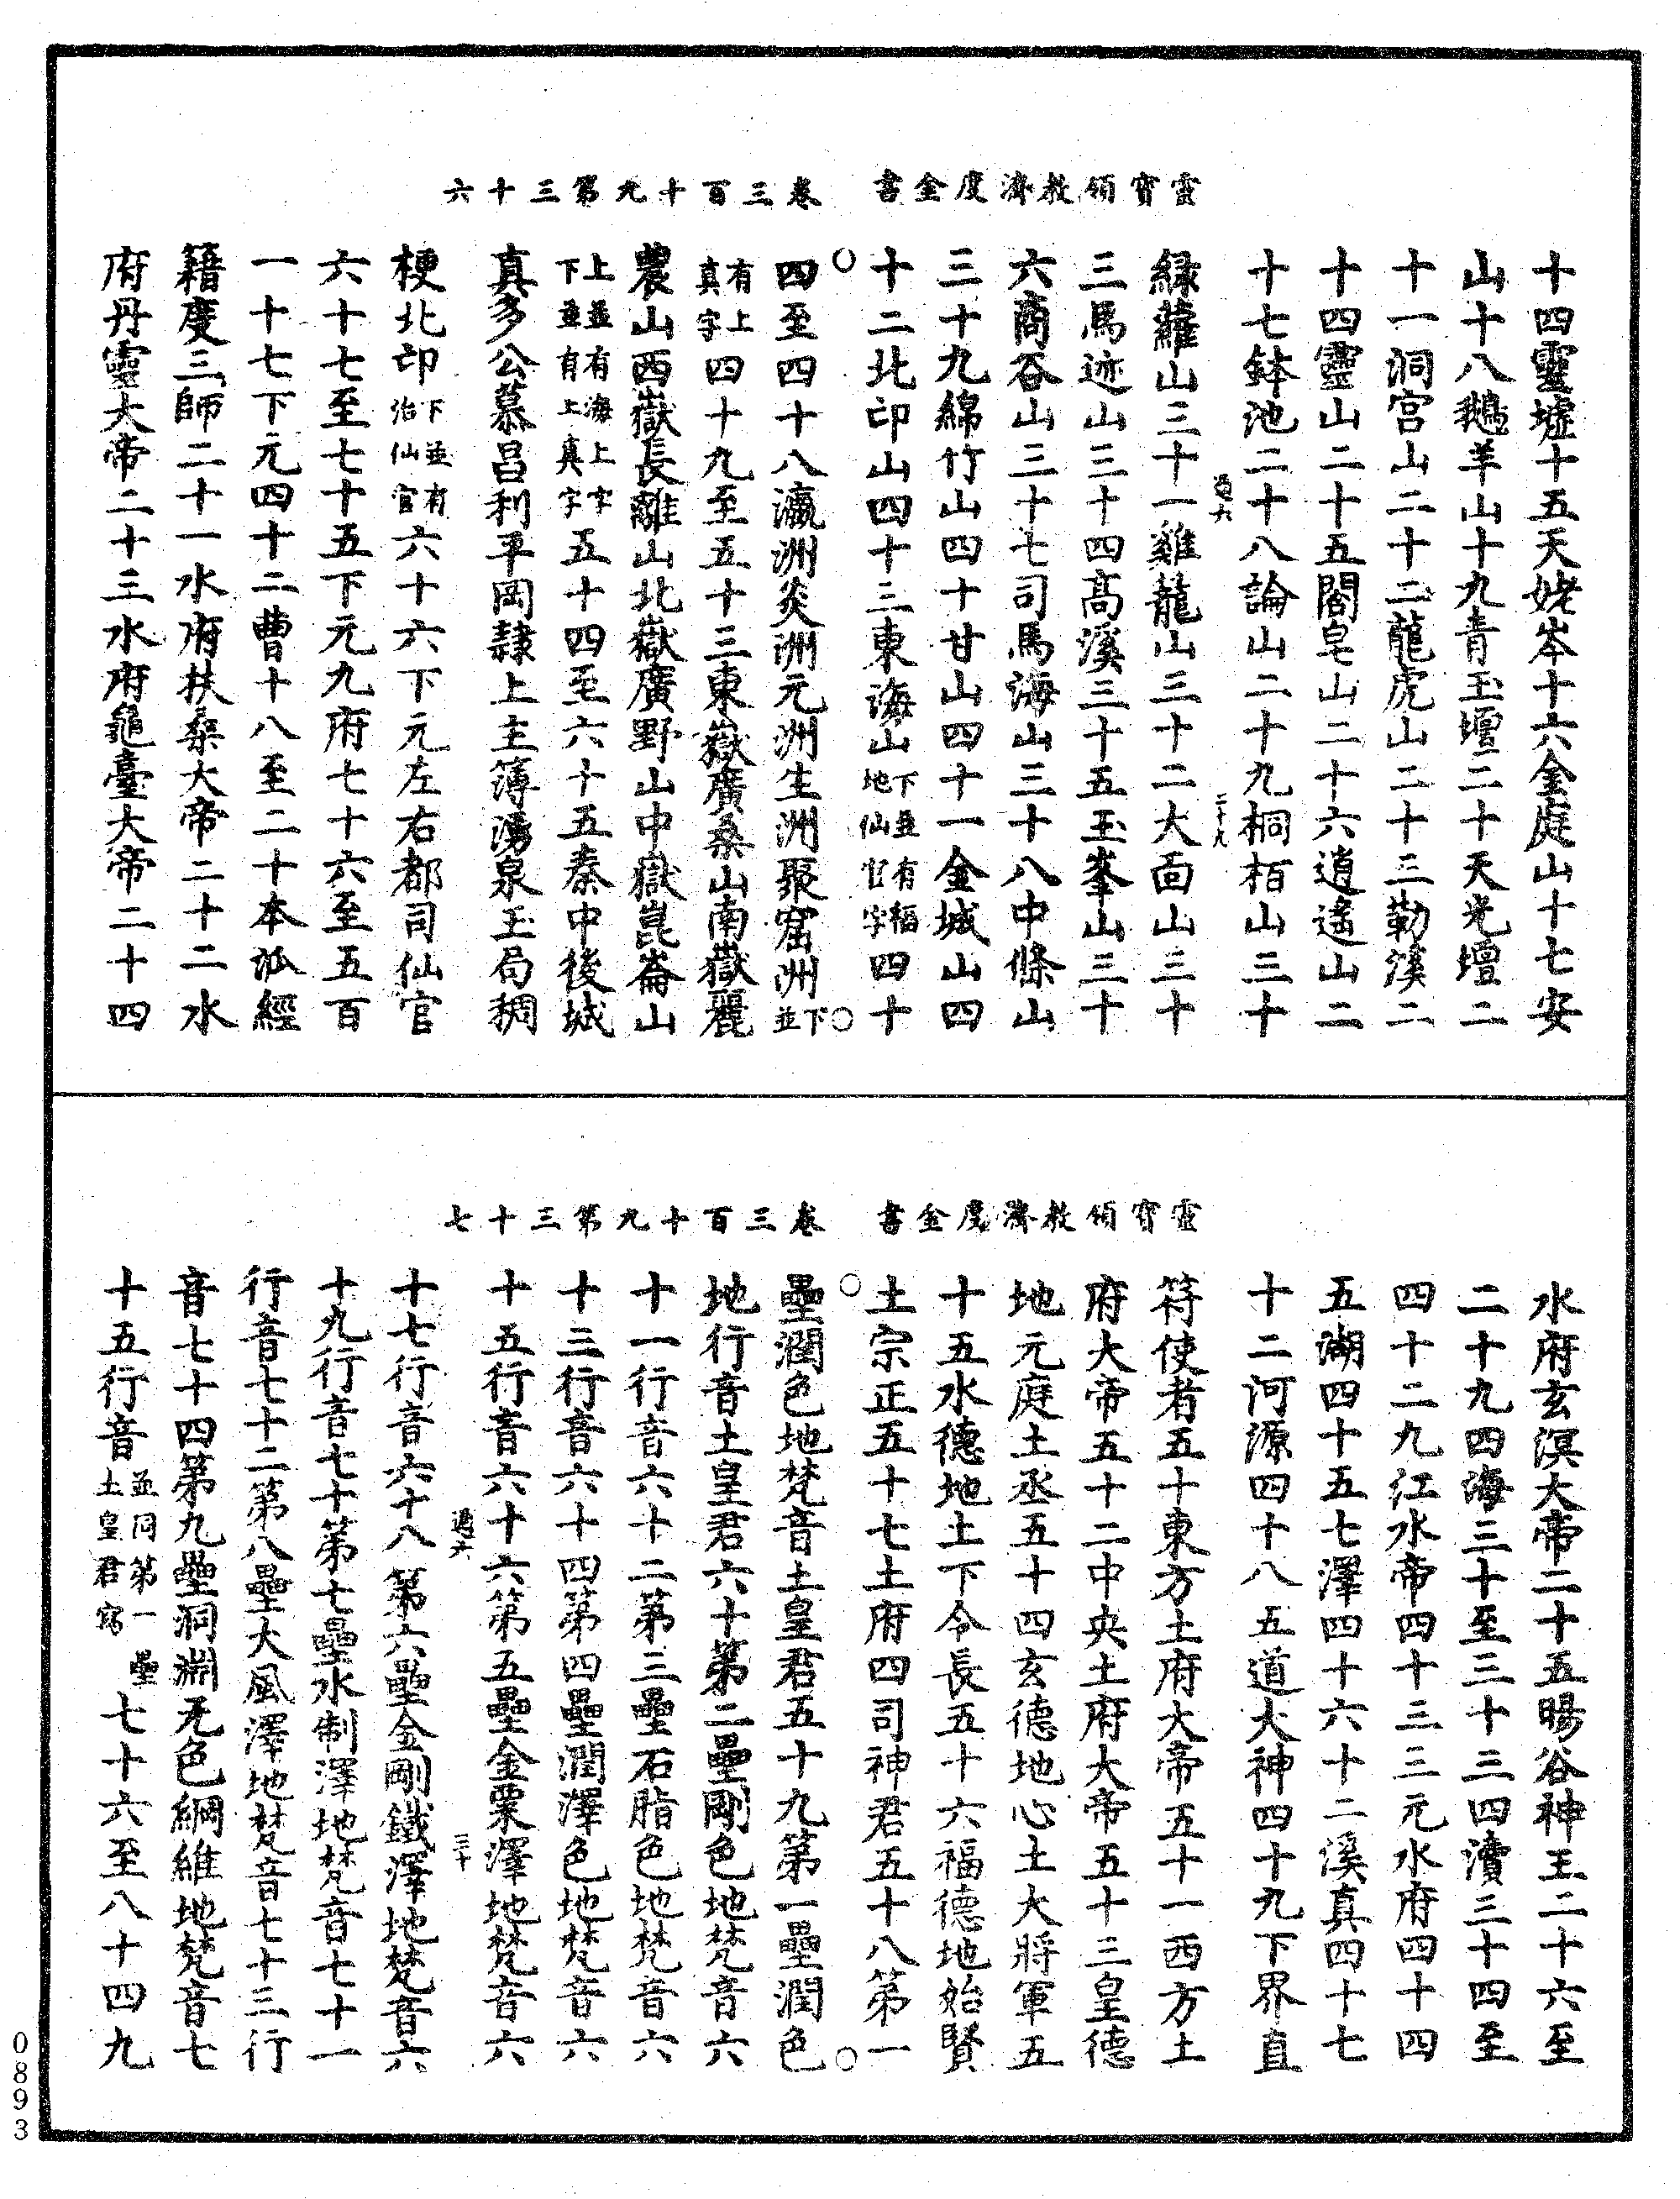 靈寶領教濟度金書　卷三百十九第三十六
十四靈墟十五天姥岑十六金庭山十七安
山十八鵝羊山十九青玉壇二十天光壇二
十一洞宫山二十二龍虎山二十三勒溪二
十四靈山二十五閤皂山二十六逍遙山二
十七鉢池二十八論山二十九桐栢山三十
過六　二十九
緑蘿山三十一雞龍山三十二大面山三十
三馬迹山三十四髙溪三十五玉峯山三十
六商谷山三十七司馬海山三十八中條山
三十九綿竹山四十甘山四十一金城山四
十二北邙山四十三東海山下並有福地仙官字四十
四至四十八瀛洲炎洲元洲生洲聚窟洲下並
有上真字四十九至五十三東嶽廣桑山南嶽麗
農山西嶽長離山北嶽廣野山中嶽崑崙山
上並有海上字下並有上真字五十四至六十五秦中後城
真多公慕昌利平岡隷上主簿湧泉玉局稠
梗北邙下並有治仙官六十六下元左右都司仙官
六十七至七十五下元九府七十六至五百
一十七下元四十二曹十八至二十本派經
籍度三師二十一水府扶桑大帝二十二水
府丹靈大帝二十三水府龜臺大帝二十四
靈寶領教濟度金書　卷三百十九第三十七
水府玄溟大帝二十五暘谷神王二十六至
二十九四海三十至三十三四瀆三十四至
四十二九江水帝四十三三元水府四十四
五湖四十五七澤四十六十二溪真四十七
十二河源四十八五道大神四十九下界直
符使者五十東方土府大帝五十一西方土
府大帝五十二中央土府大帝五十三皇德
地元庭土丞五十四玄德地心土大將軍五
十五水德地土下令長五十六福德地始賢
土宗正五十七土府四司神君五十八第一
壘潤色地梵音土皇君五十九第一壘潤色
地行音土皇君六十第二壘剛色地梵音六
十一行音六十二第三壘石脂色地梵音六
十三行音六十四第四壘潤澤色地梵音六
十五行音六十六第五壘金粟澤地梵音六
過六　三十
十七行音六十八第六壘金剛鐵澤地梵音六
十九行音七十第七壘水制澤地梵音七十一
行音七十二第八壘大風澤地梵音七十三行
音七十四第九壘洞淵无色綱維地梵音七
十五行音並同第一壘土皇君寫七十六至八十四九
0893